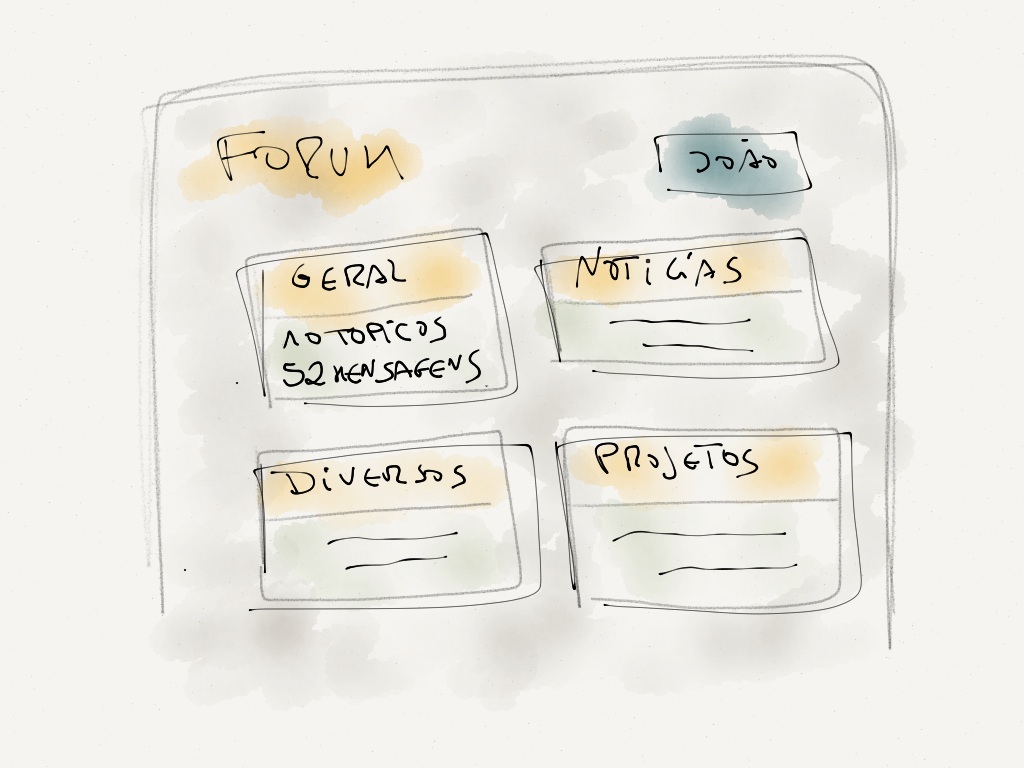 FORUM
JOÃO
GERAL
10 TOPICOS
52 MENSAGENS
NOTICÍAS
DIVERSOS
PROJETOS